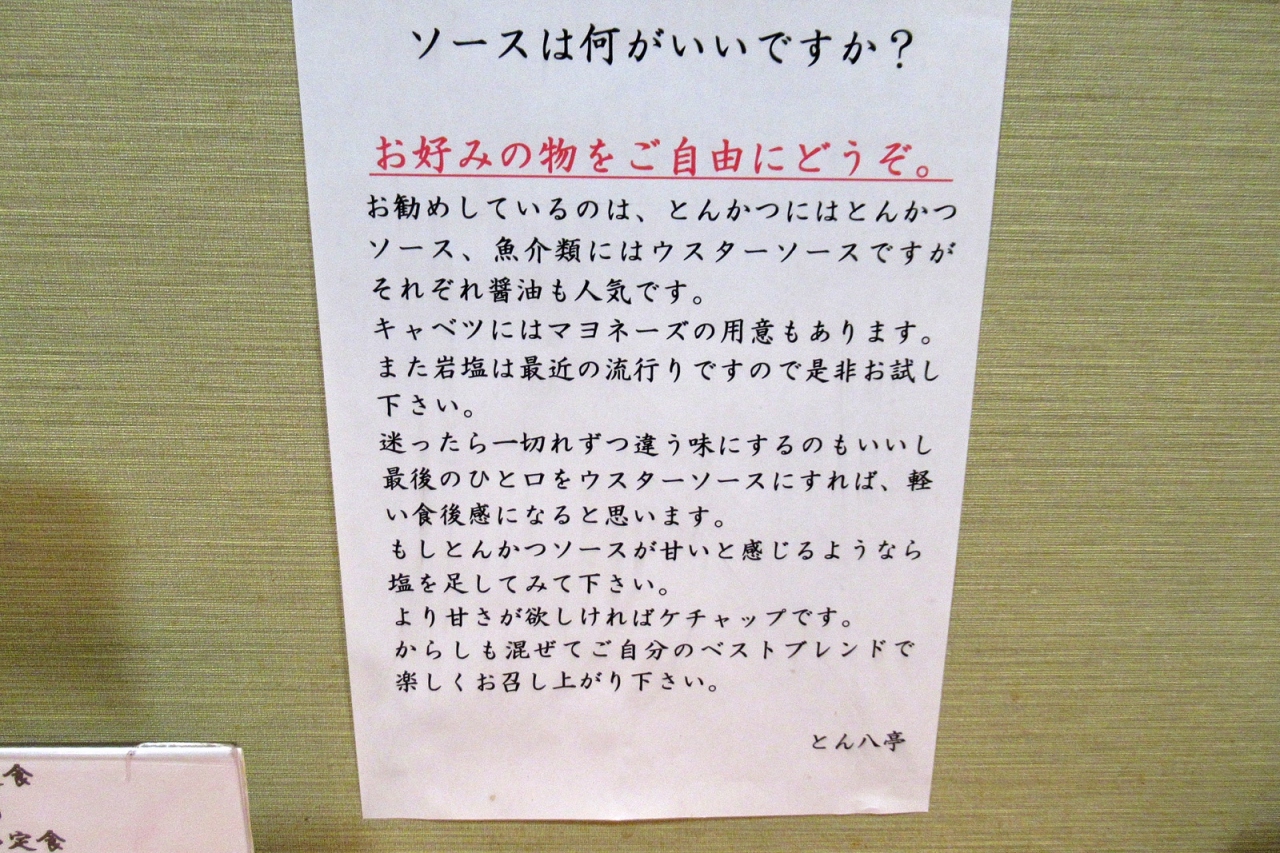 ソースは何がいいですか？
お好みの物をご自由にどうぞ。
お勧めしているのは、とんかつにはとんかつ
ソース、魚介類にはウスターソースですが
それぞれ醤油も人気です。
キャベツにはマヨネーズの用意もあります。
また岩塩は最近の流行りですので是非お試し
下さい。
迷ったら一切れずつ違う味にするのもいいし
最後のひと口をウスターソースにすれば、軽
い食後感になると思います。
もしとんかつソースが甘いと感じるようなら
塩を足してみて下さい。
より甘さが欲しければケチャップです。
からしも混ぜてご自分のベストブレンドで
楽しくお召し上がり下さい。
とん八亭
食
定食